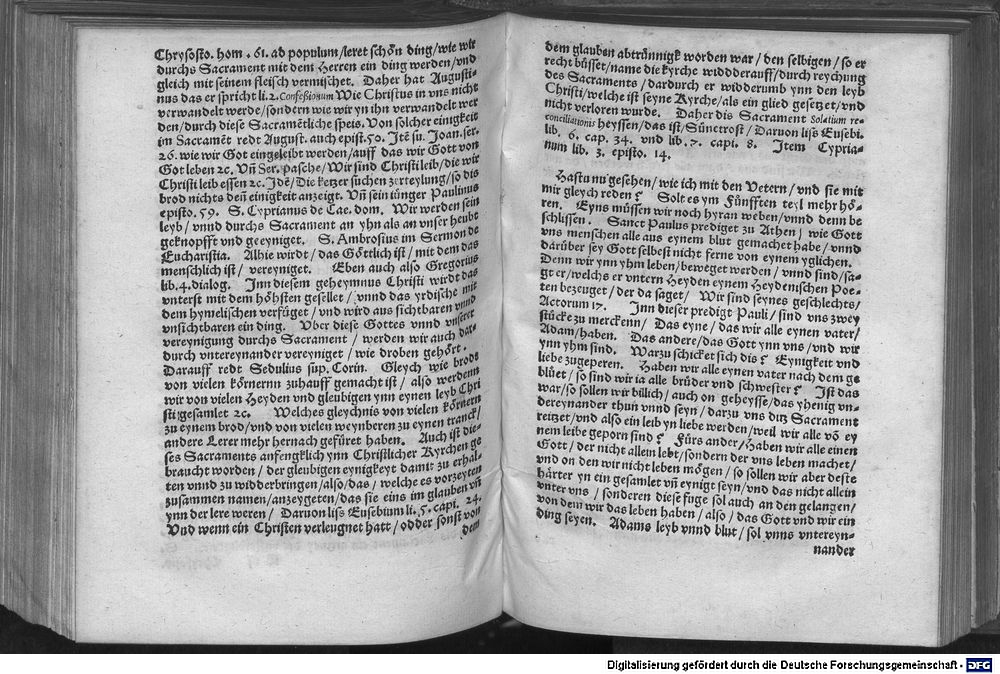 Chrysosto. hom. 61. ad populum/leret schön ding/wie wir
durchs Sacrament mit dem Herren ein ding werden/vnd
gleich mit seinem fleisch vermischet. Daher hat Augusti-
nus das er spricht li.2. Confeßionum Wie Christus in vns nicht
verwandelt werde/sondern wie wir yn ihn verwandelt wer
den/durch diese Sacramētliche speis. Von solcher einigkeit
im Sacramēt redt August. auch epist.50. Itē su. Joan. ser.
26. wie wir Got eingeleibt werden/auff das wir Gott von
Got leben ꝛc. Vn̄ Ser. pasche/Wir sind Christi leib/die wir
Christi leib essen ꝛc. Jdē/Die ketzer suchen zerteylung/so dis
brod nichts den̄ einigkeit anzeigt. Vn̄ sein iünger Paulinus
episto. 59. S. Cyprianus de Cae. dom. Wir werden sein
leyb/vnnd durchs Sacrament an yhn als an vnser heubt
geknopfft vnd geeyniget. S. Ambrosius im Sermon de
Eucharistia. Alhie wirdt/das Göttlich ist/mit dem das
menschlich ist/vereyniget. Eben auch also Gregorius
lib.4.dialog. Jnn diesem geheymnus Christi wirdt das
vnterst mit dem höhsten gesellet/vnnd das yrdische mit
dem hymelischen verfüget/vnd wird aus sichtbaren vnnd
vnsichtbaren ein ding. Vber diese Gottes vnnd vnserer
vereynigung durchs Sacrament/werden wir auch dar-
durch vntereynander vereyniget/wie droben gehört.
Darauff redt Sedulius sup. Corin. Gleych wie brods
von vielen körnernn zuhauff gemacht ist/also werdenn
wir von vielen Heyden vnd gleubigen ynn eynen leyb Chri
sti gesamlet ꝛc. Welches gleychnis von vielen körnern
zu eynem brod/vnd von vielen weynberen zu eynen tranck/
andere Lerer mehr hernach gefüret haben. Auch ist die-
ses Sacraments anfengklich ynn Christlicher Kyrchen ge
braucht worden/der gleubigen eynigkeyt damit zu erhal-
ten vnnd zu widderbringen/also/das/welche es vorzeyten
zusammen namen/anzeygeten/das sie eins im glauben vn̄
ynn der lere weren/Daruon lis Eusebium li. 5. capi. 24.
Vnd wenn ein Christen verleugnet hatt/odder sonst von
dem
dem glauben abtrünnigk worden war/den selbigen/so er
recht büsset/name die kyrche widdderauff/durch reychung
des Sacraments/dardurch er widderumb ynn den leyb
Christi/welche ist seyne Kyrche/als ein glied gesetzet/vnd
nicht verloren wurde. Daher dis Sacrament Solatium re
conciliationis heyssen/das ist/Sünetrost/Daruon lis Eusebi.
lib. 6. cap. 34. vnd lib. 7. capi. 8. Item Cypria-
num lib. 3. episto. 14.
Hastu nu gesehen/wie ich mit den Vetern/vnd sie mit
mir gleych reden? Solt es ym Fünfften teyl mehr hö-
ren. Eyns müssen wir noch hyran weben/vnnd denn be
schlissen. Sanct Paulus prediget zu Athen/wie Gott
vns menschen alle aus eynem blut gemachet habe/vnnd
darüber sey Gott selbest nicht ferne von eynem yglichen.
Denn wir ynn yhm leben/beweget werden/vnnd sind/sa-
gt er/welchs er vntern Heyden eynem Heydenischen Poe-
ten bezeuget/der da saget/Wir sind seynes geschlechts/
Actorum 17. Jnn dieser predigt Pauli/sind vns zwey
stücke zu merckenn/Das eyne/das wir alle eynen vater/
Adam/haben. Das andere/das Gott ynn vns/vnd wir
ynn yhm sind. Warzu schicket sich dis? Eynigkeit vnd
liebe zugeperen. Haben wir alle eynen vater nach dem ge
blüet/so sind wir ia alle brüder vnd schwester? Jst das
war/so sollen wir billich/auch on geheysse/das yhenig vn-
dereynander thun vnnd seyn/darzu vns ditz Sacrament
reitzet/vnd also ein leib yn liebe werden/weil wir alle vō ey
nem leibe geporn sind? Fürs ander/Haben wir alle einen
Gott/der nicht allein lebt/sondern der vns leben machet/
vnd on den wir nicht leben mögen/so sollen wir aber deste
härter yn ein gesamlet vn̄ eynigt seyn/vnd das nicht allein
vnter vns/sonderen diese fuge sol auch an den gelangen/
von dem wir das leben haben/also/das Gott vnd wir ein
ding seyen. Adams leyb vnnd blut/sol vnns vntereyn-
nander
Digitalisierung gefördert durch die Deutsche Forschungsgemeinschaft - DFG